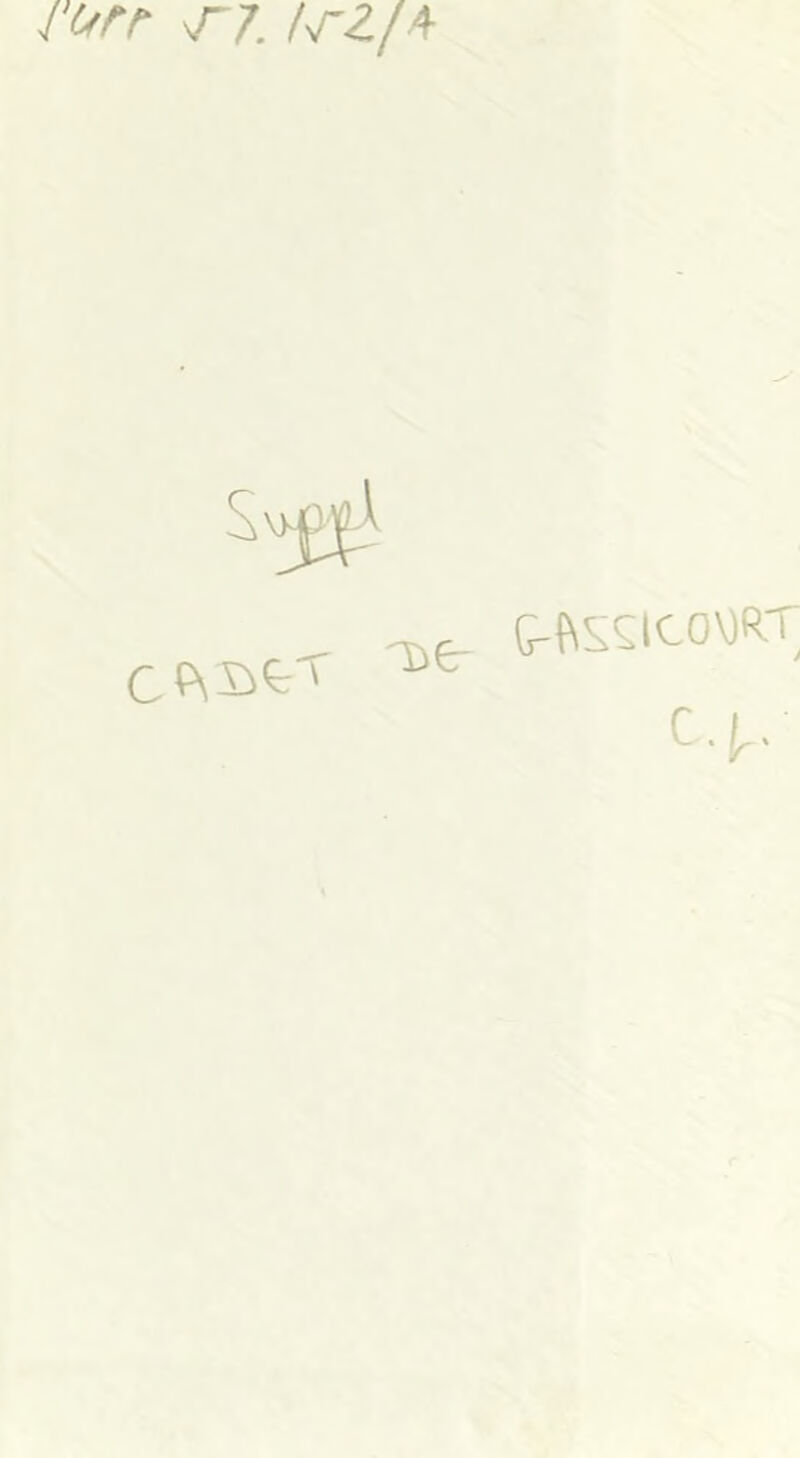 Supp 57.152/A
Suppl
CADET DE GASSICOURT,
C.L.